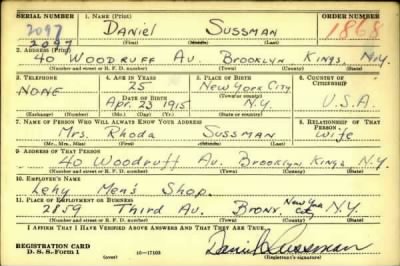 SERIAL NUMBER 1. NAME (Print) ORDER NUMBER
2097 Daniel Sussman 1868
2097 (First) (Middle) (Last)
2. ADDRESS (Print)
40 Woodruff Av. Brooklyn Kings N.Y.
(Number and street or R. F. D. number) (Town) (County) (State)
3. TELEPHONE 4. AGE IN YEARS 5. PLACE OF BIRTH 6. COUNTRY OF CITIZENSHIP
NONE 25 New York City
DATE OF BIRTH (Town or county)
Apr. 23 1915 N.Y. U.S.A.
(Exchange) (Number) (Mo.) (Day) (Yr.) (State or country)
7. NAME OF PERSON WHO WILL ALWAYS KNOW YOUR ADDRESS 8. RELATIONSHIP OF THAT PERSON
Mrs. Rhoda Sussman Wife
(Mr., Mrs., Miss) (First) (Middle) (Last)
9. ADDRESS OF THAT PERSON
40 Woodruff Av. Brooklyn Kings N.Y.
(Number and street or R. F. D. number) (Town) (County) (State)
10. EMPLOYER'S NAME
Lehy Men's Shop.
11. PLACE OF EMPLOYMENT OR BUSINESS
2859 Third Av. Bronx New York City N.Y.
(Number and street or R. F. D. number) (Town) (County) (State)
I AFFIRM THAT I HAVE VERIFIED ABOVE ANSWERS AND THAT THEY ARE TRUE.
REGISTRATION CARD
D. S. S. Form 1 16—17105 Daniel Sussman